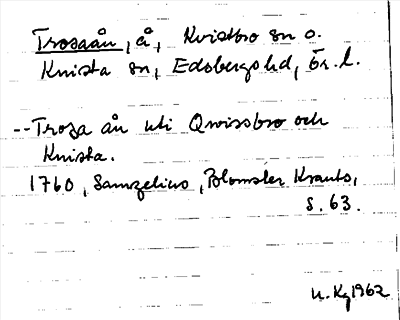 Trosaån, å, Kvistbro sn o.
Knista sn, Edsbergs hd, Ör. l.
--Trosa ån uti Qwissbro och
Knista.
1760, Samzelius, Blomster Krants,
S. 63.
1962